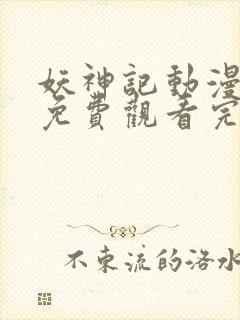 妖神記動漫
免費觀看完
不束流的洛水